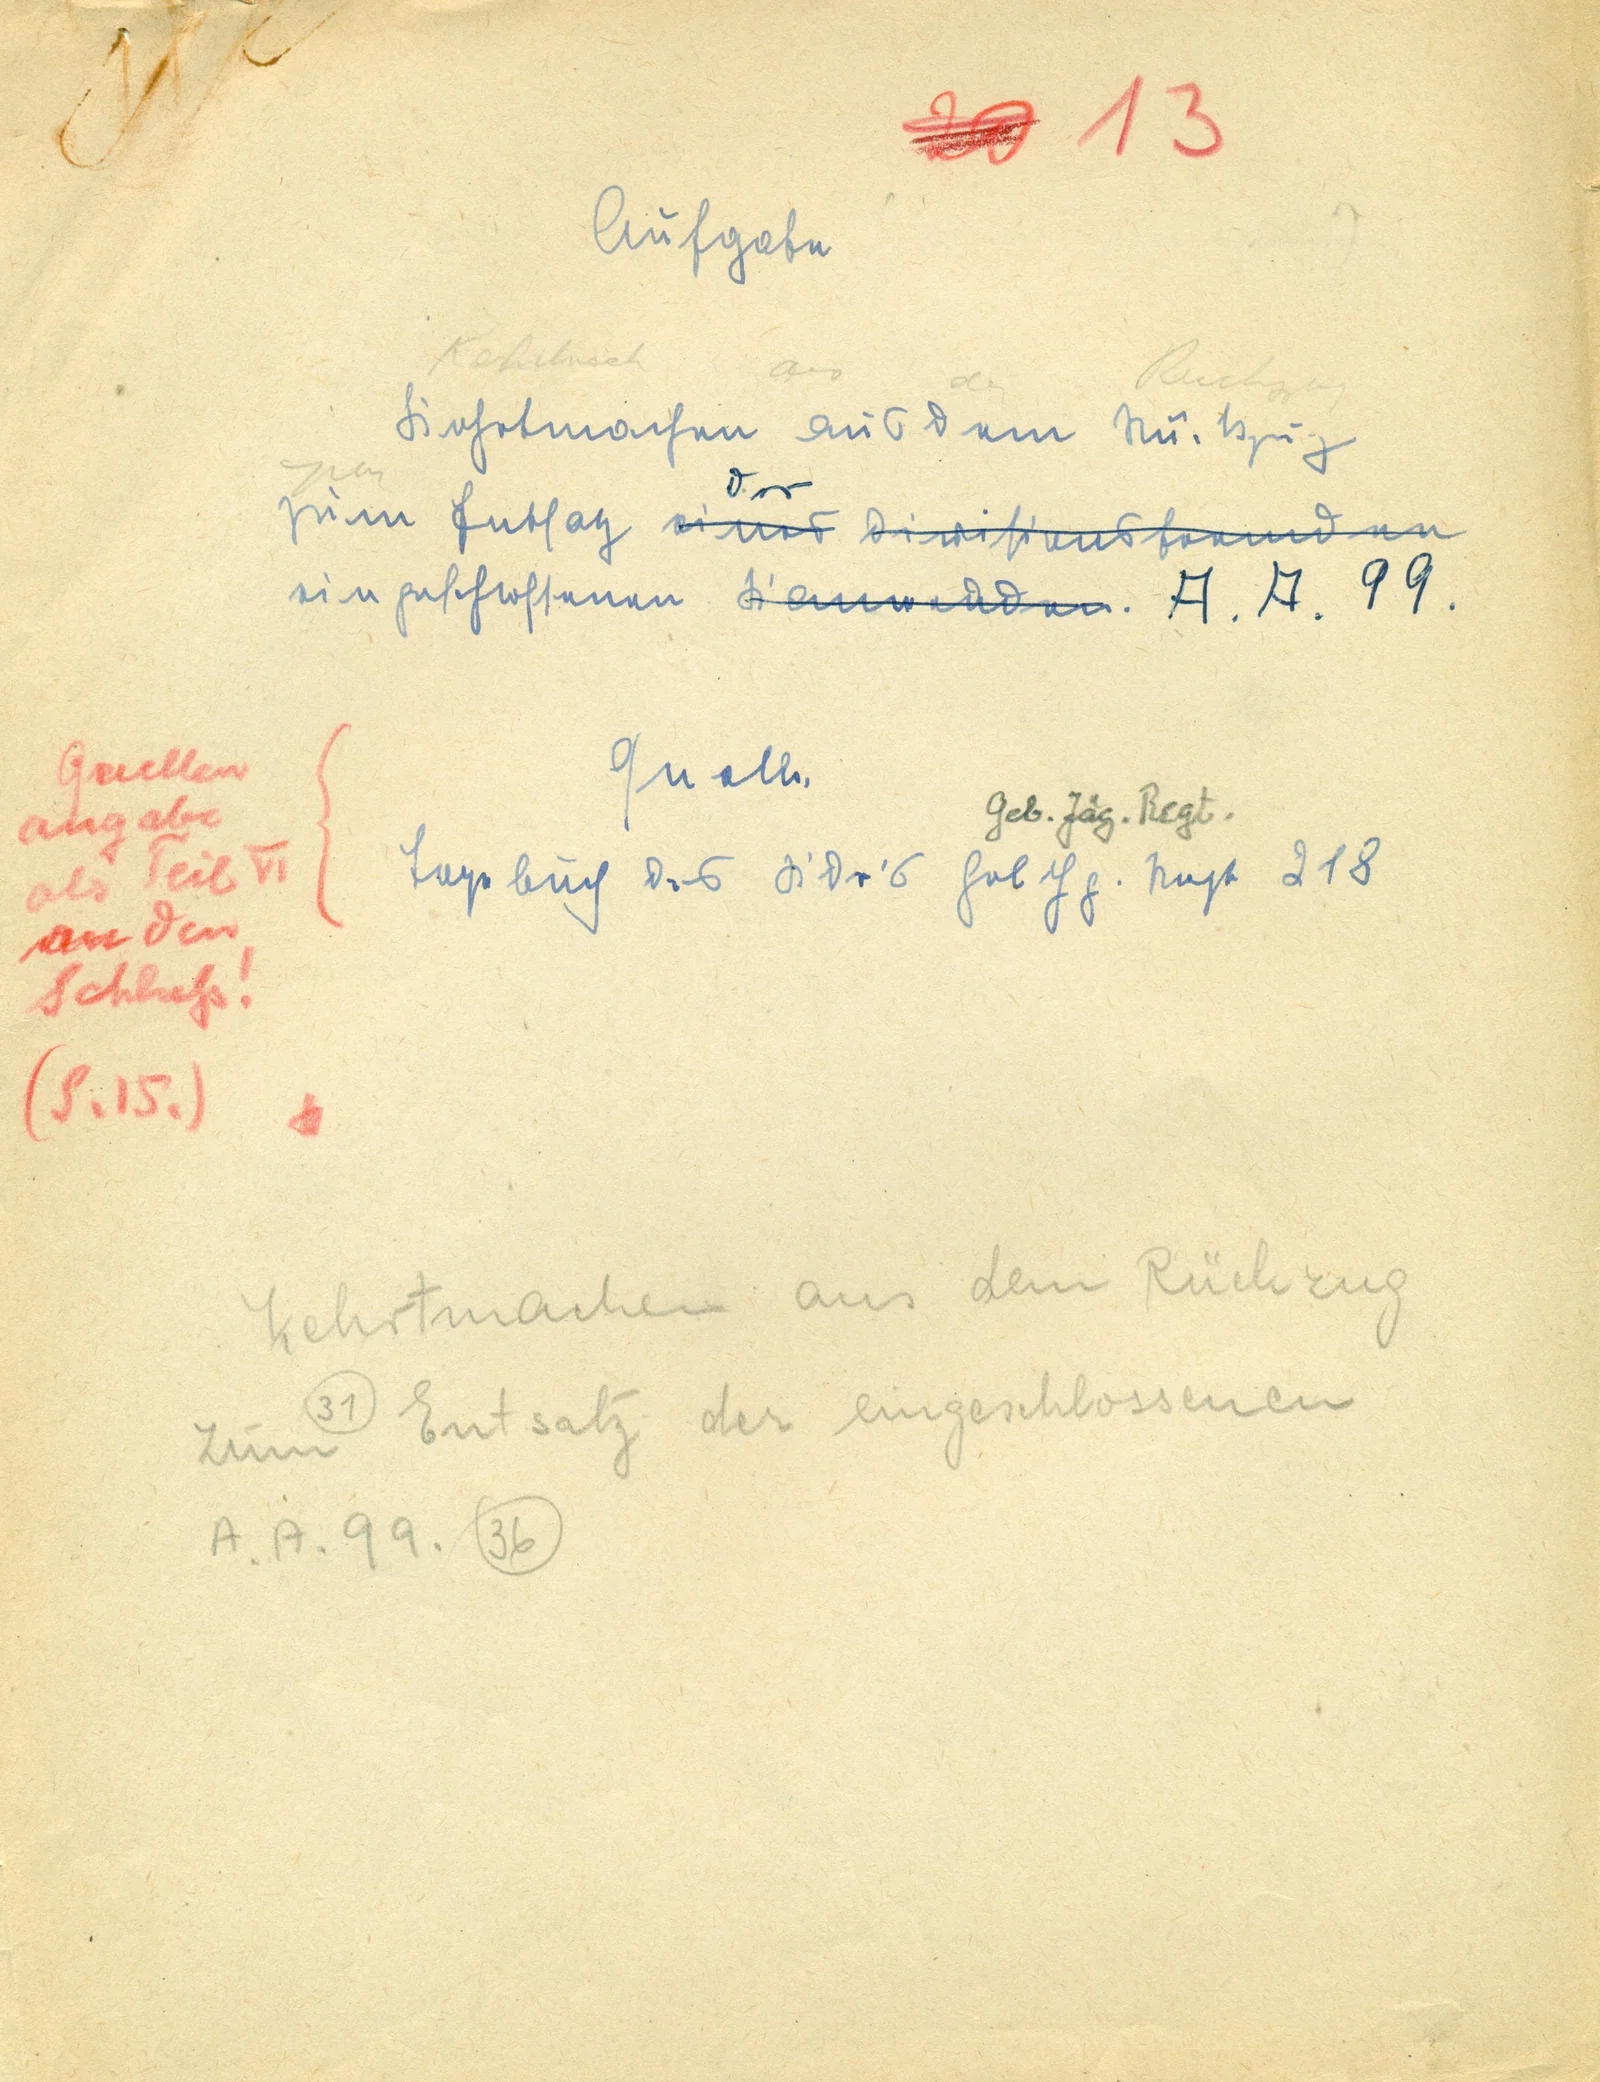 20 13
Aufgabe
aus
Kehrtmachen aus dem Rückzug
der
zum Entsatz eines divisionsfremden
eingeschlossenen A. A. 99.
Quellen
angabe
als Teil VI
an den
Schluß!
(S. 15.)
Quelle.
Geb. Jäg. Regt.
Tagebuch des Kdr's Geb Jg. Regt 218
Kehrtmachen aus dem Rückzug
31
zum Entsatz der eingeschlossenen
A. A. 99. 36